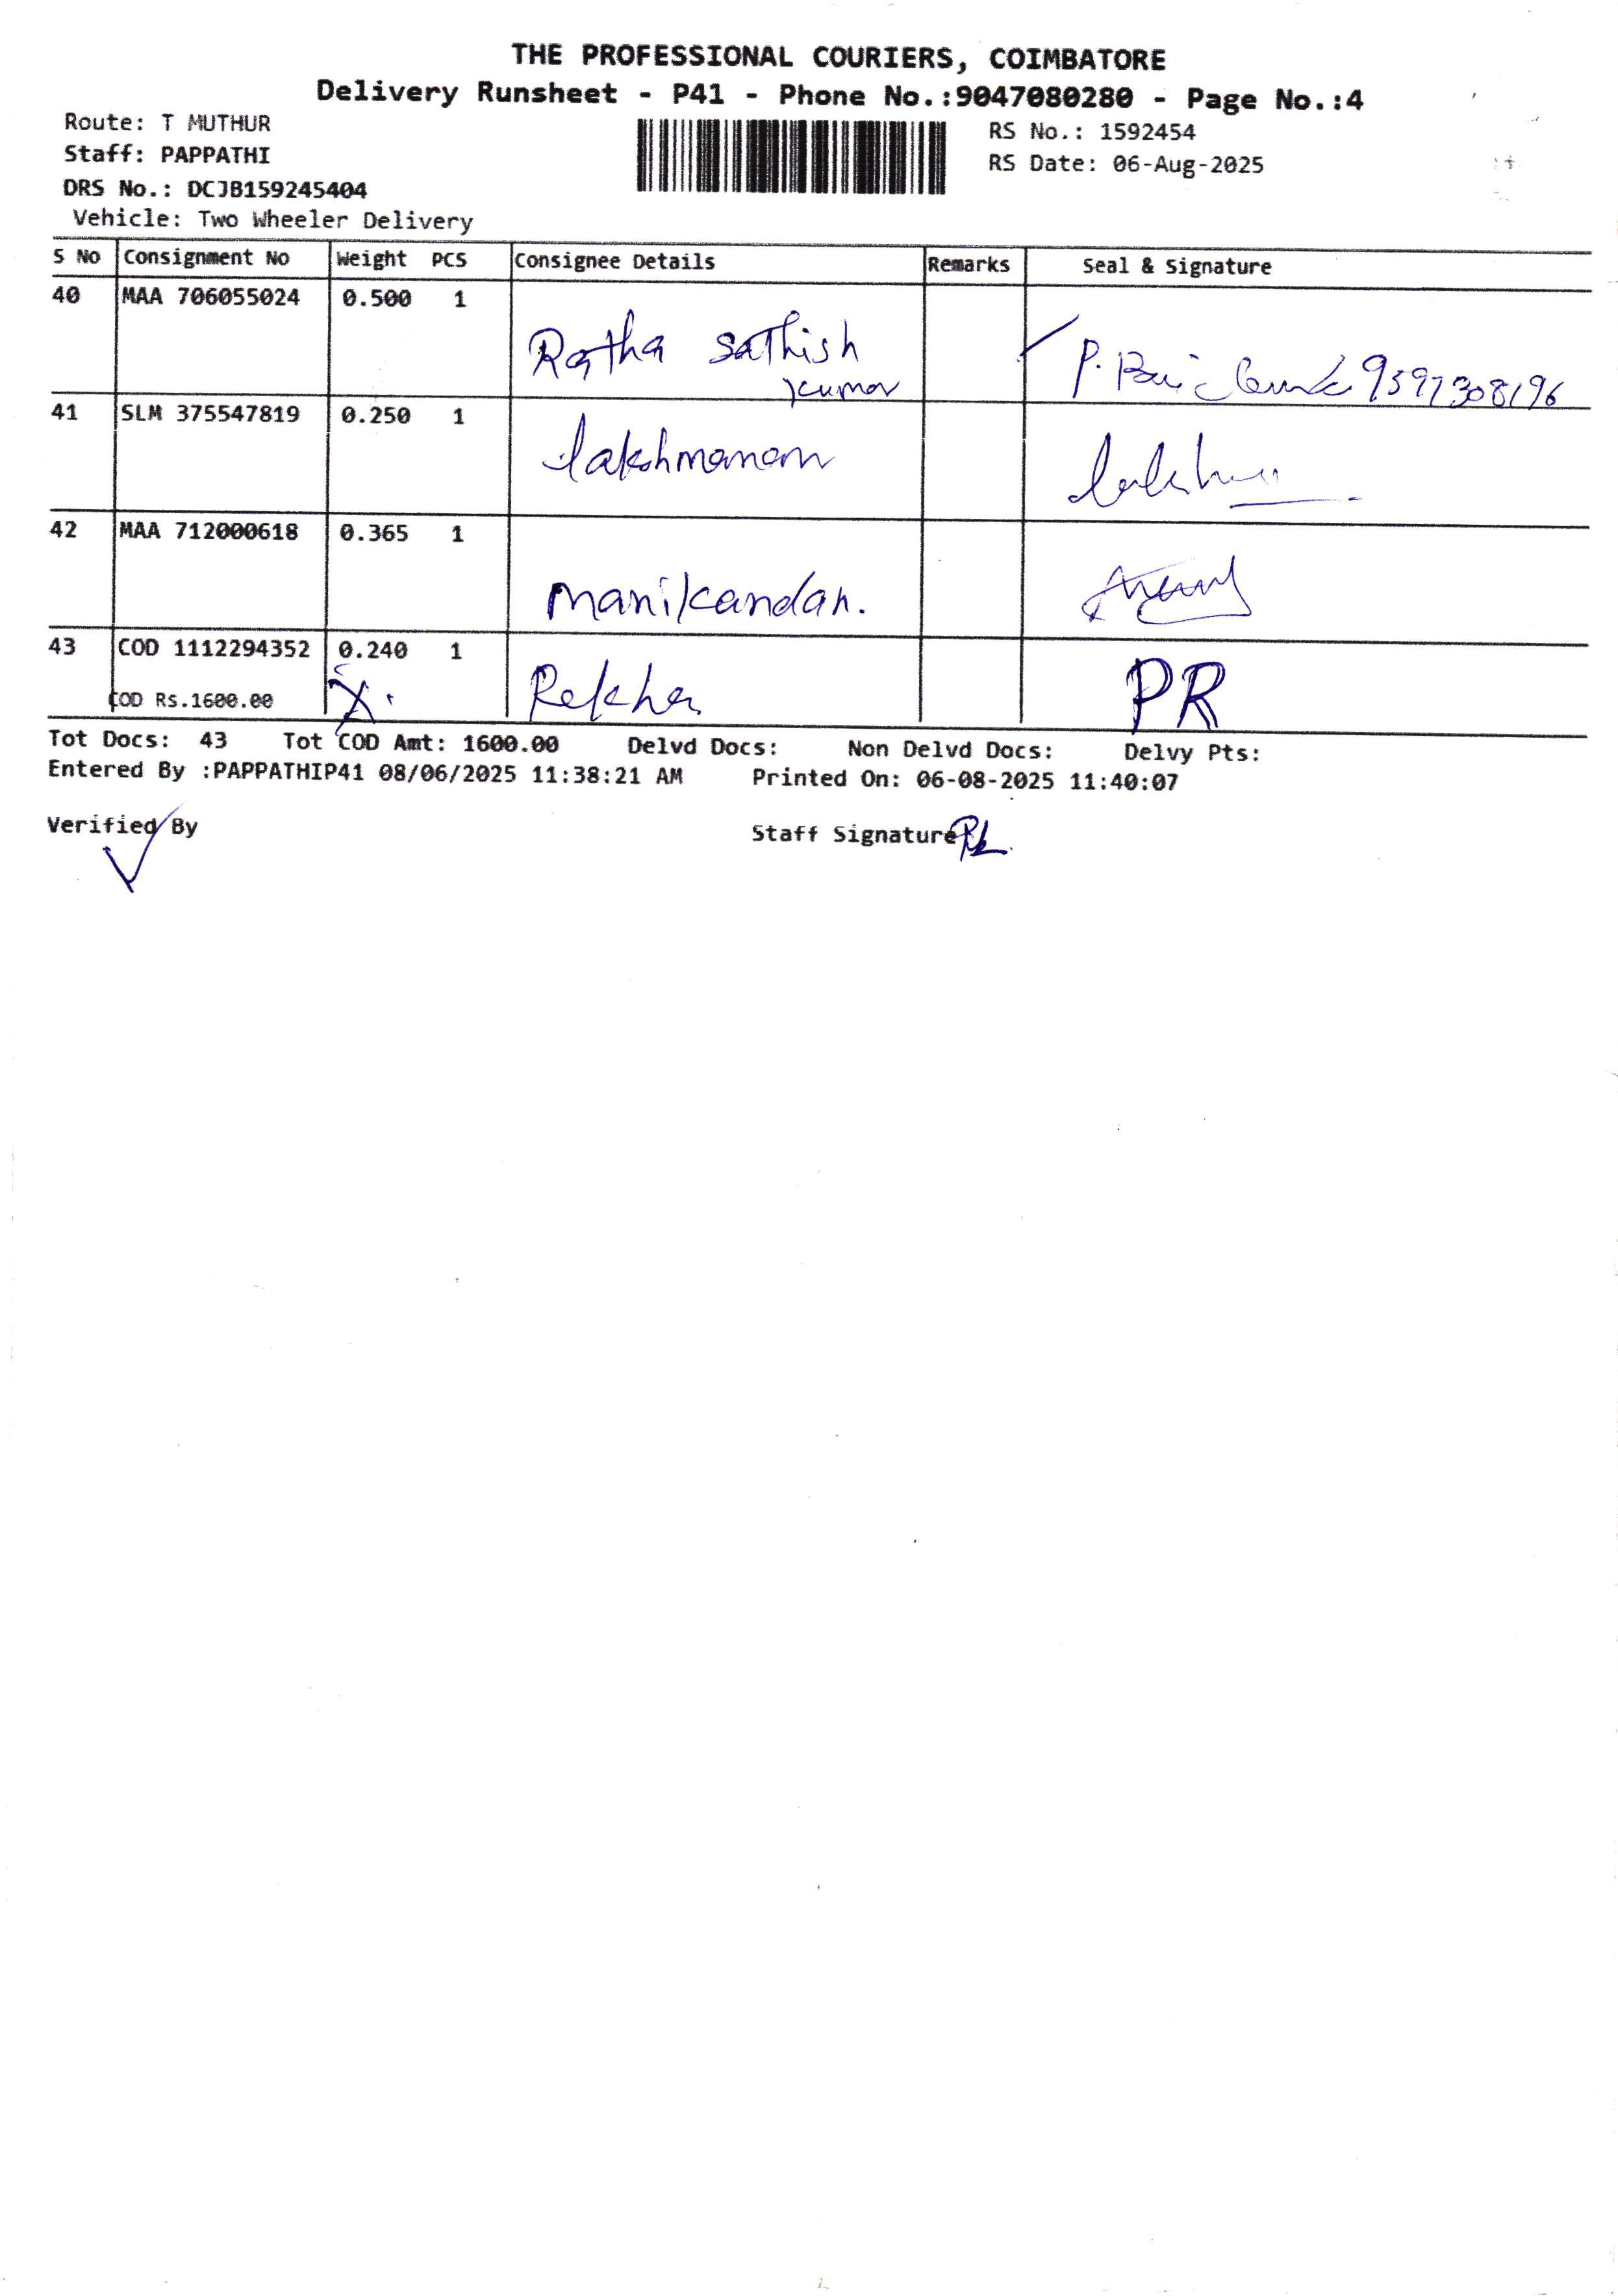 THE PROFESSIONAL COURIERS, COIMBATORE
Delivery Runsheet - P41 - Phone No.:9047080280 - Page No.:4
Route: T MUTHUR
RS No.: 1592454
Staff: PAPPATHI
RS Date: 06-Aug-2025
DRS No.: DCJB159245404
Vehicle: Two Wheeler Delivery
S No Consignment No Weight PCS Consignee Details Remarks Seal & Signature
40 MAA 706055024 0.500 1
Ratha Sathish
kumar
P. 9597308196
41 SLM 375547819 0.250 1
lakshmanan
42 MAA 712000618 0.365 1
manikandan.
43 COD 1112294352 0.240 1
COD Rs.1600.00 X. Rekha PR
Tot Docs: 43 Tot COD Amt: 1600.00 Delvd Docs: Non Delvd Docs: Delvy Pts:
Entered By :PAPPATHIP41 08/06/2025 11:38:21 AM Printed On: 06-08-2025 11:40:07
Verified By Staff Signature